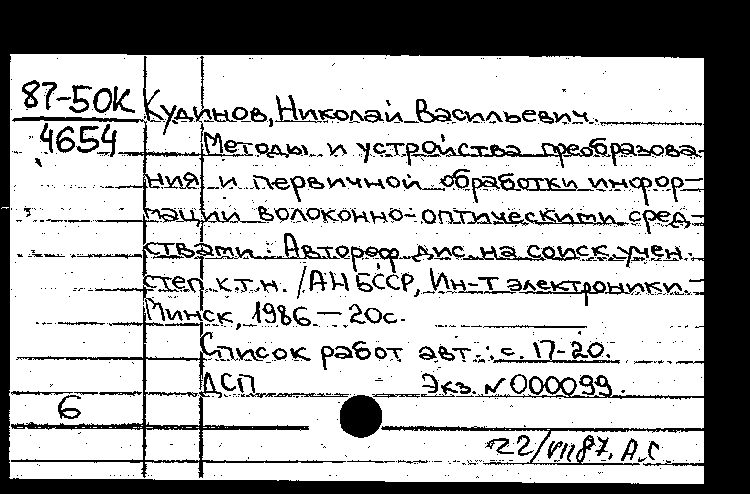 87-50К
4654
Кудинов, Николай Васильевич.
Методы и устройства преобразова-
ния и первичной обработки инфор-
мации волоконно-оптическими сред-
ствами: Автореф. дис. на соиск. учен.
степ. к.т.н. /АН БССР, Ин-т электроники. -
Минск, 1986 - 20с.
Список работ авт.: с. 17-20.
ДСП Экз. N 000099.
6
22/VII 87. А.С